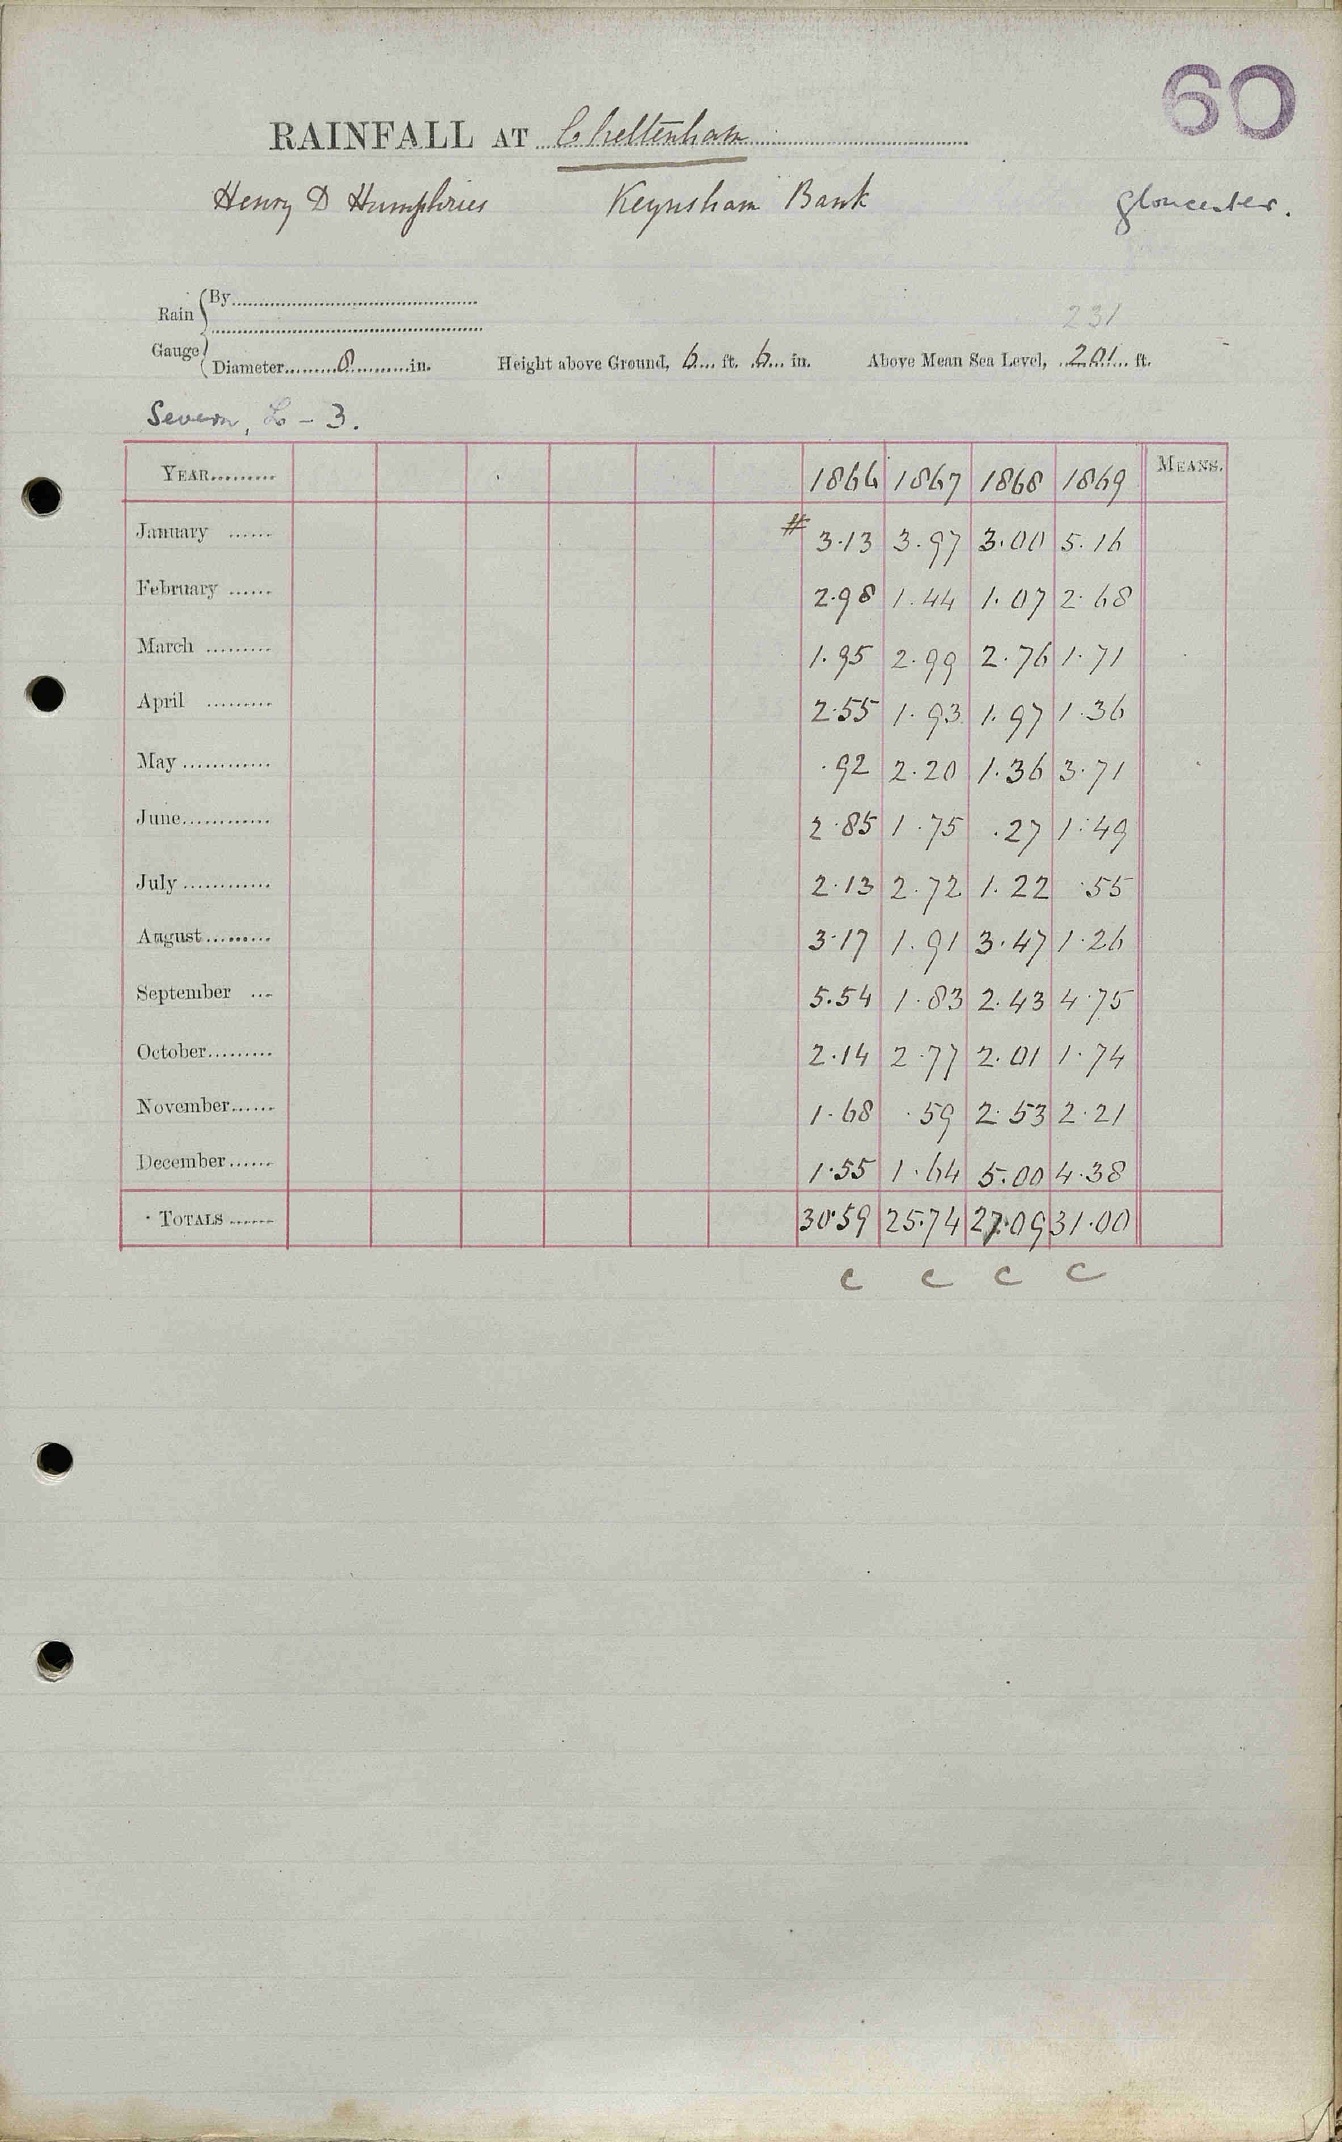 60
RAINFALL AT Cheltenham
Henry D Humphries Keynsham Bank Gloucester.
Rain Gauge
By
231
Diameter 8 in. Height above Ground, 6 ft. 6 in. Above Mean Sea Level, 201 ft.
Severn, L - 3.
YEAR 1866 1867 1868 1869 MEANS.
January # 3.13 3.97 3.00 5.16
February 2.98 1.44 1.07 2.68
March 1.95 2.99 2.76 1.71
April 2.55 1.93 1.97 1.36
May .92 2.20 1.36 3.71
June 2.85 1.75 .27 1.49
July 2.13 2.72 1.22 .55
August 3.17 1.91 3.47 1.26
September 5.54 1.83 2.43 4.75
October 2.14 2.77 2.01 1.74
November 1.68 .59 2.53 2.21
December 1.55 1.64 5.00 4.38
TOTALS 30.59 25.74 27.09 31.00
c c c c